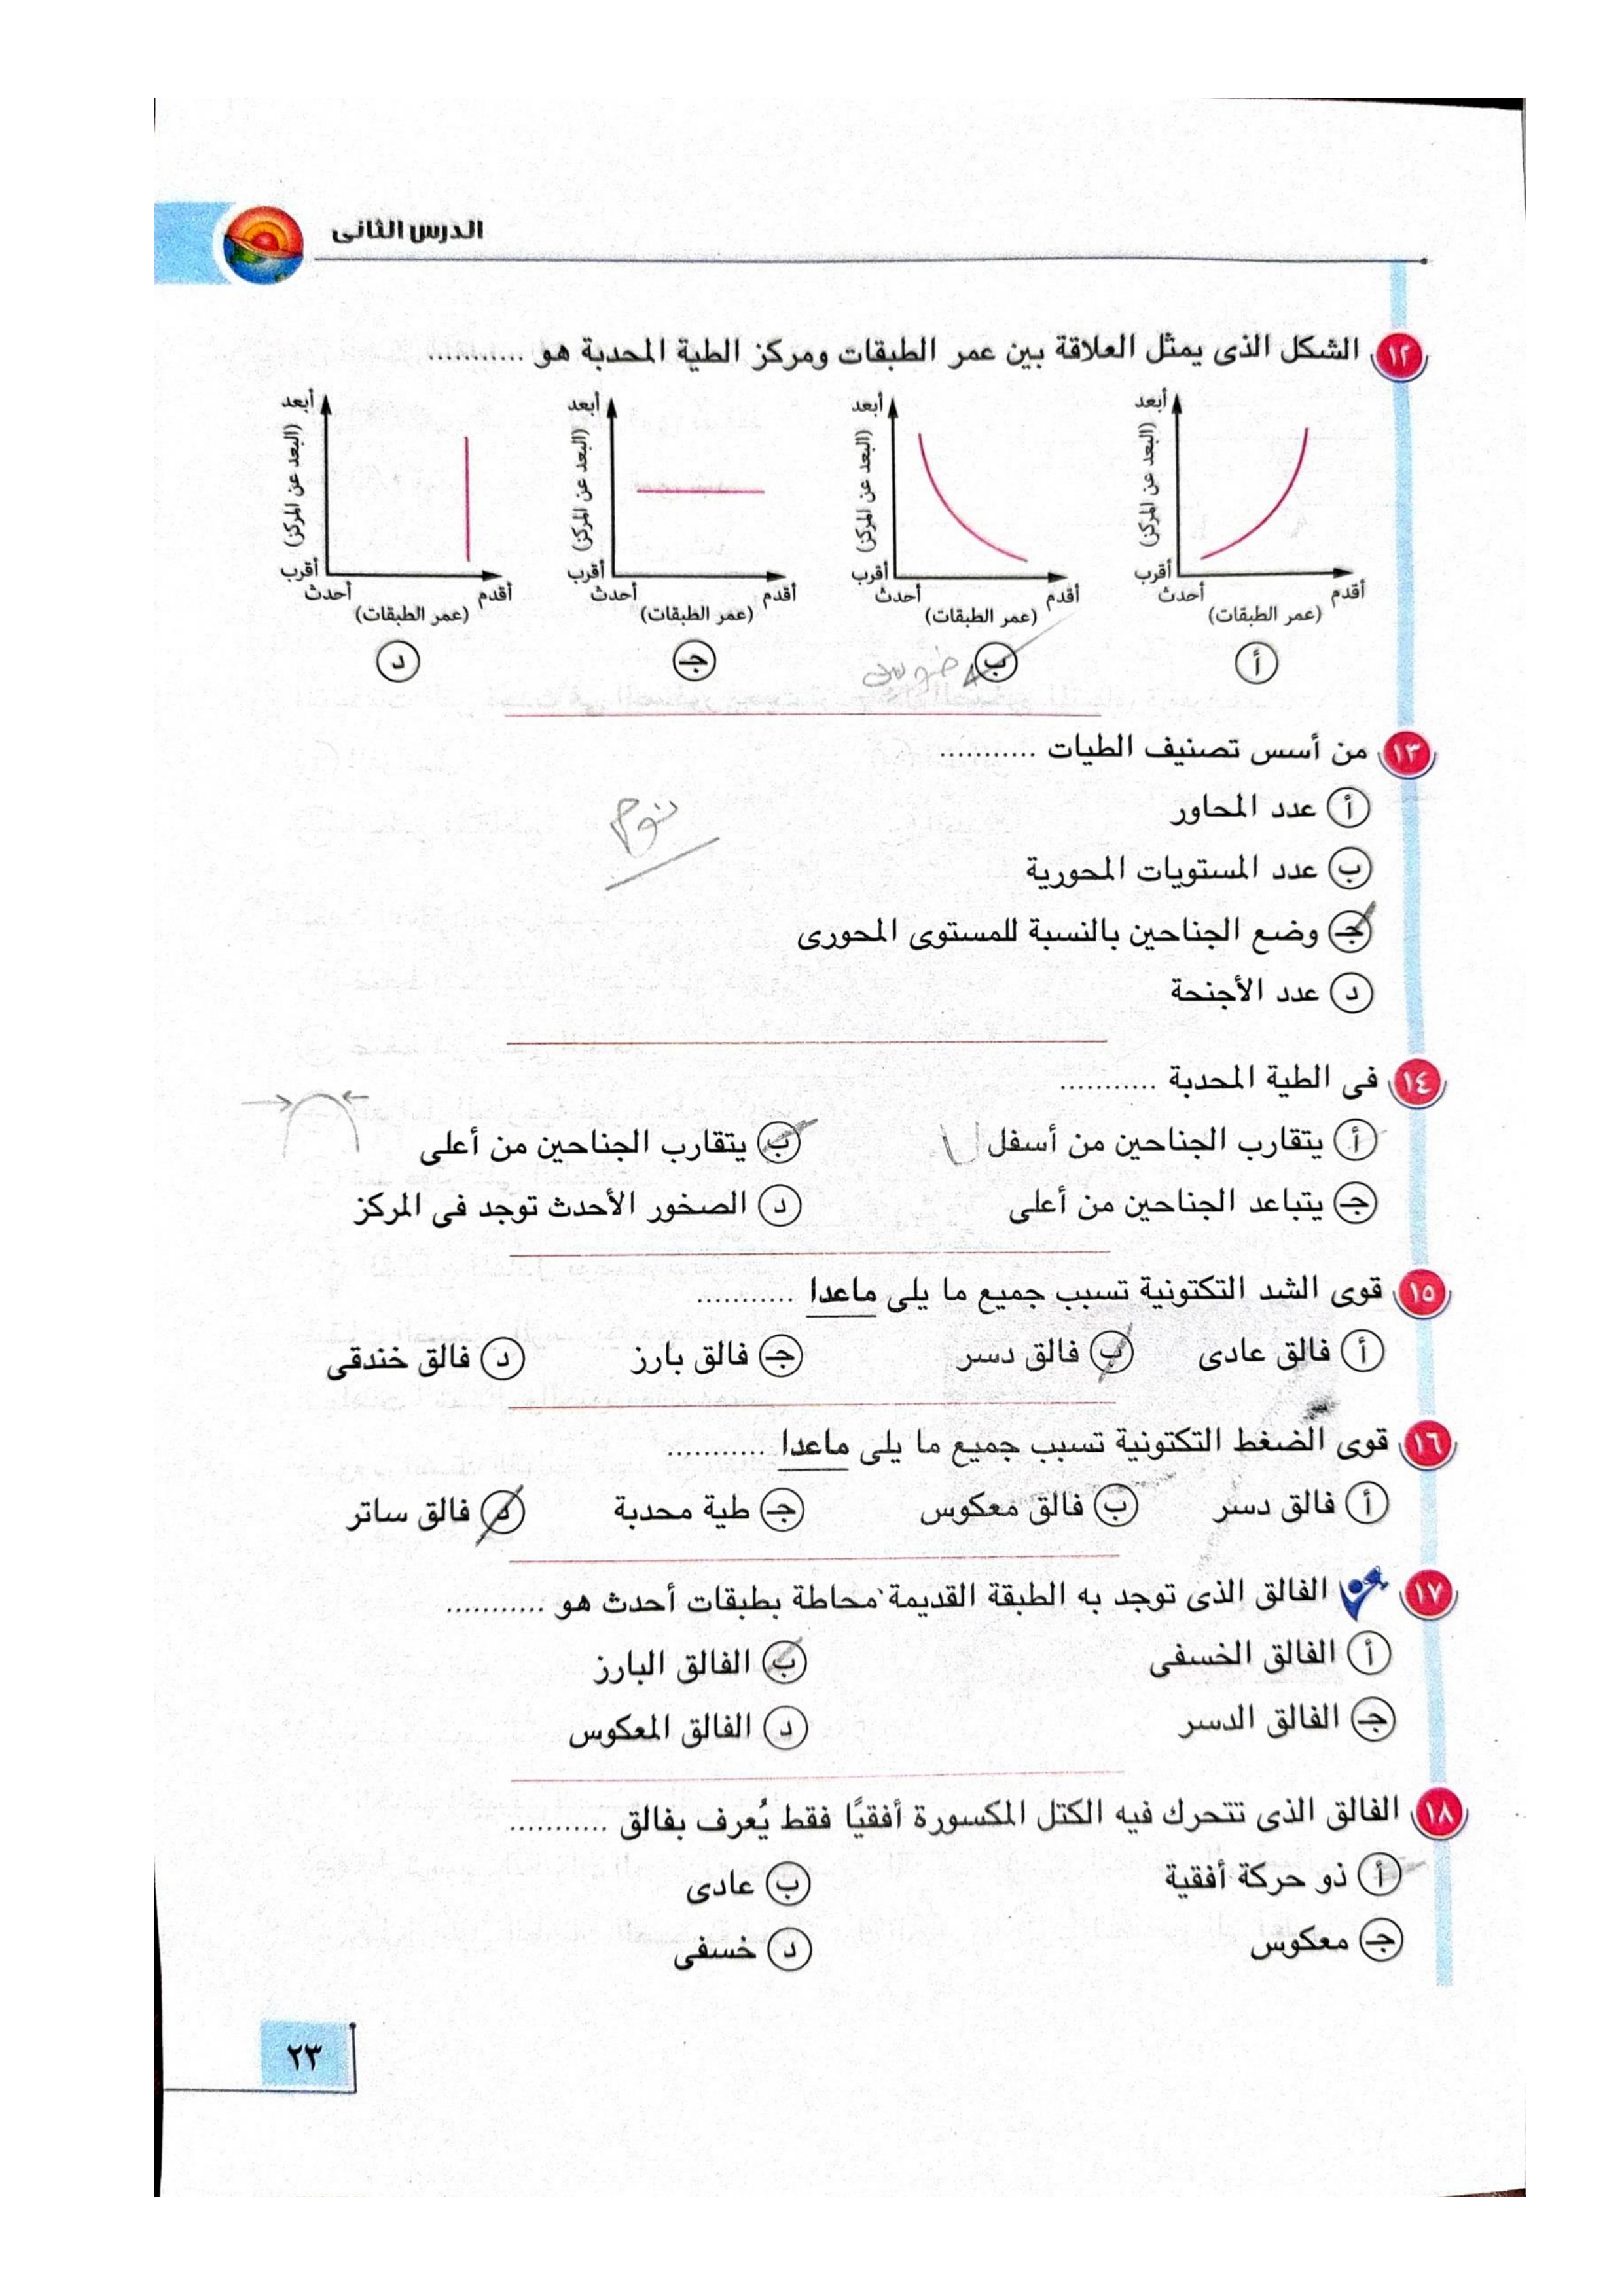 الدرس الثانى
١٢ الشكل الذى يمثل العلاقة بين عمر الطبقات ومركز الطية المحدبة هو ...........
أبعد أبعد أبعد أبعد
(البعد عن المركز) (البعد عن المركز) (البعد عن المركز) (البعد عن المركز)
أقرب أقرب أقرب أقرب
أحدث أقدم أحدث أقدم أحدث أقدم أحدث أقدم
(عمر الطبقات) (عمر الطبقات) (عمر الطبقات) (عمر الطبقات)
أ ب جـ د
١٣ من أسس تصنيف الطيات ...........
أ عدد المحاور
نوع
ب عدد المستويات المحورية
جـ وضع الجناحين بالنسبة للمستوى المحورى
د عدد الأجنحة
١٤ فى الطية المحدبة ...........
أ يتقارب الجناحين من أسفل ب يتقارب الجناحين من أعلى
جـ يتباعد الجناحين من أعلى د الصخور الأحدث توجد فى المركز
١٥ قوى الشد التكتونية تسبب جميع ما يلى ماعدا ...........
أ فالق عادى ب فالق دسر جـ فالق بارز د فالق خندقى
١٦ قوى الضغط التكتونية تسبب جميع ما يلى ماعدا ...........
أ فالق دسر ب فالق معكوس جـ طية محدبة د فالق ساتر
١٧ الفالق الذى توجد به الطبقة القديمة محاطة بطبقات أحدث هو ...........
أ الفالق الخسفى ب الفالق البارز
جـ الفالق الدسر د الفالق المعكوس
١٨ الفالق الذى تتحرك فيه الكتل المكسورة أفقيًا فقط يُعرف بفالق ...........
أ ذو حركة أفقية ب عادى
جـ معكوس د خسفى
٢٣